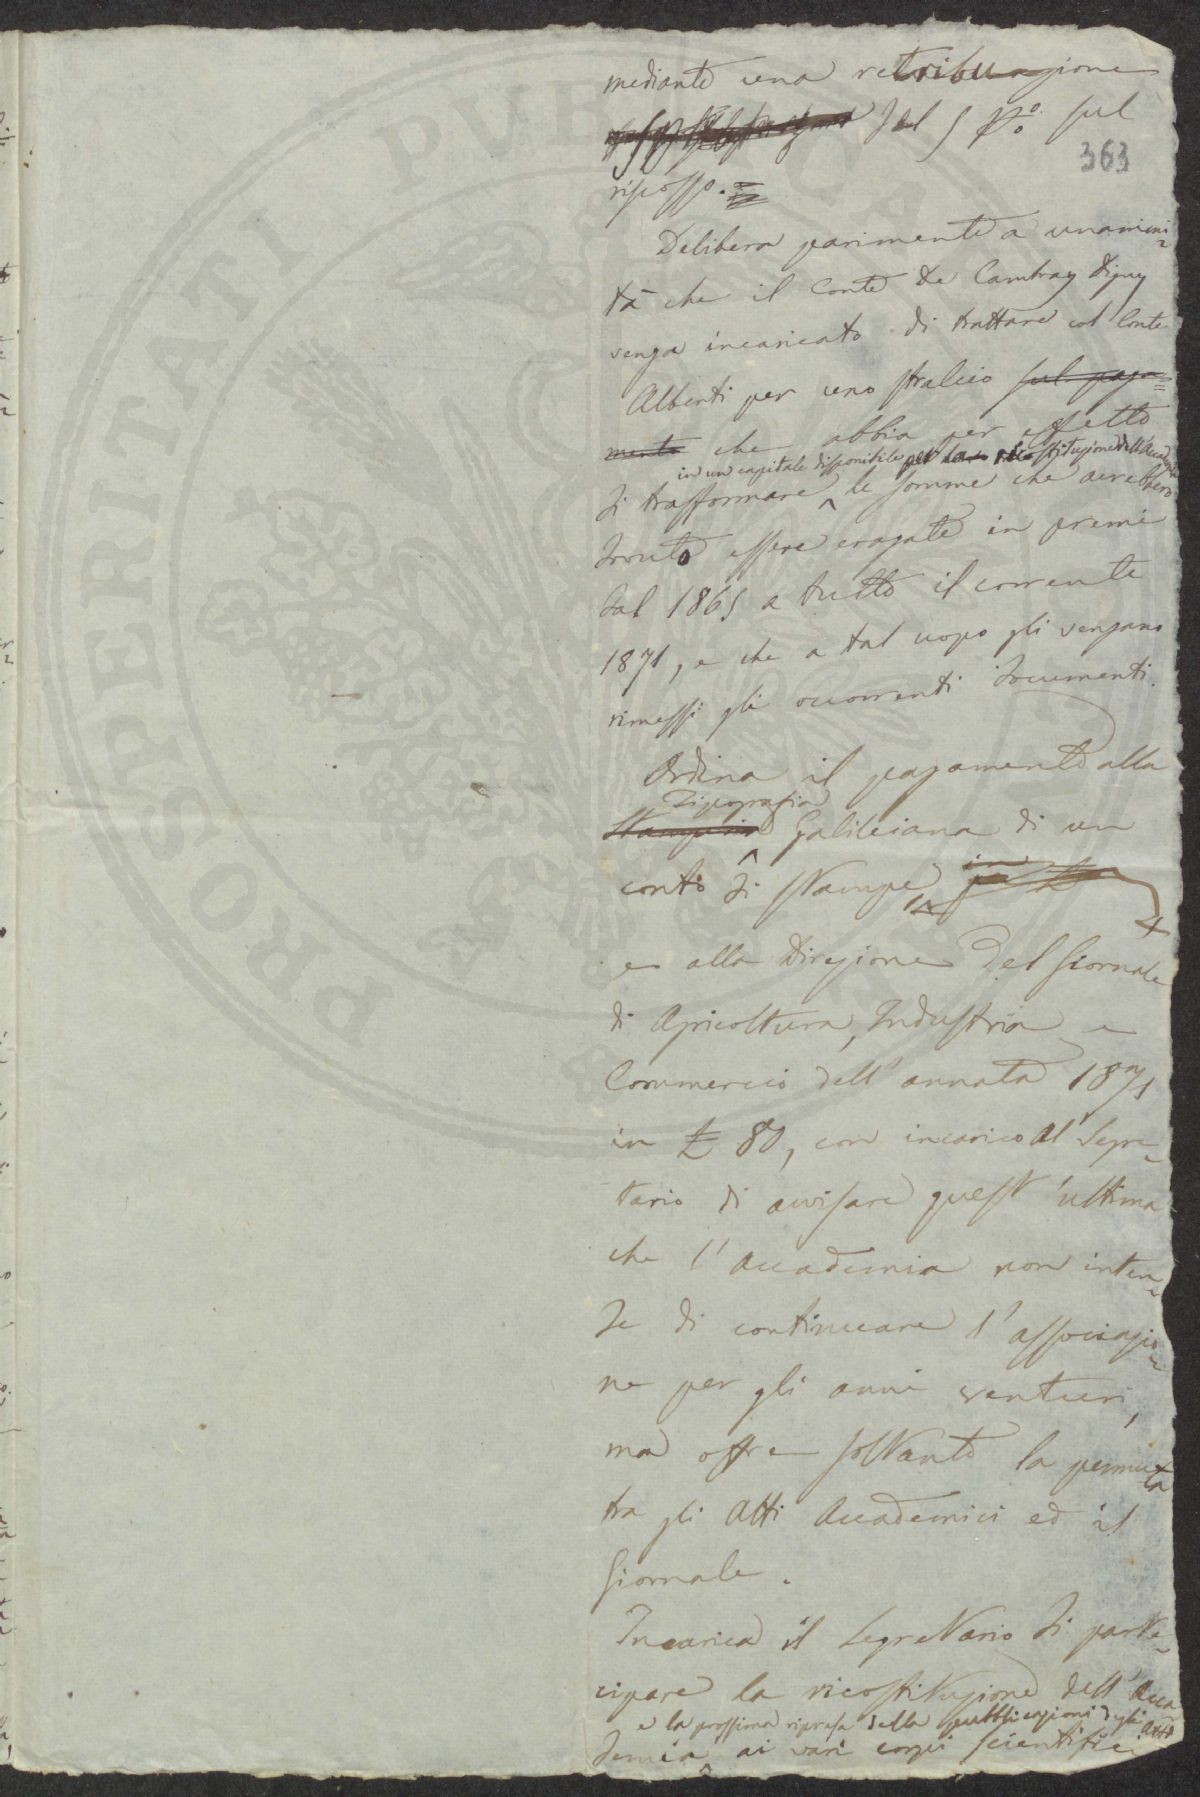 mediante una retribuzione
del 5 p%o sul
363
riscosso.
Delibera parimente a unanimi=
tà che il Conte De Cambray Digny
venga incaricato di trattare col Conte
Alberti per uno stralcio sul paga=
mento che abbia per effetto
in un capitale disponibile per la ricostituzione dell'Accademia
di trasformare le somme che avrebbero
dovuto essere erogate in premi
dal 1865 a tutto il corrente
1871, e che a tal uopo gli vengano
rimessi gli occorrenti documenti.
Ordina il pagamento alla
Tipografia
Stamperia Galileiana di un
conto di stampe
e alla Direzione del Giornale
di Agricoltura, Industria e
Commercio dell'annata 1871
in £ 80, con incarico al Segre=
tario di avvisare quest'ultima
che l'Accademia non inten=
de di continuare l'associazio=
ne per gli anni venturi,
ma offre soltanto la permuta
tra gli Atti Accademici ed il
Giornale.
Incarica il Segretario di parte=
cipare la ricostituzione dell'Acca
e la prossima ripresa della pubblicazioni degli Atti
demia ai vari corpi scientifici
PROSPERITATI PUBLICAE